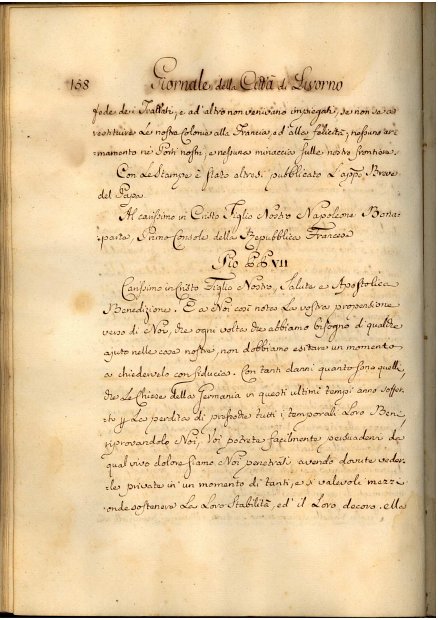 158 Giornale della Città di Livorno
fede dei Trattati, e ad altro non venivano impiegati, se non se a
restituire le nostre Colonie alla Francia, ed alla felicità; nessuno ar-
mamento ne' Porti nostri, e nessuna minaccia sulle nostre frontiere.
Con le Stampe è stato altresì pubblicato l'app. Breve
del Papa.
Al carissimo in Cristo Figlio Nostro Napoleone Bona-
parte, Primo Console della Repubblica Francese
Pio PP VII
Carissimo in Cristo Figlio Nostro, Salute e Apostolica
Benedizione. È a Noi così nota la vostra propensione
verso di Noi, che ogni volta che abbiamo bisogno di qualche
ajuto nelle cose nostre, non dobbiamo esitare un momento
a chiedervelo con fiducia. Con tanti danni quanto sono quelli,
che le Chiese della Germania in questi ultimi tempi anno soffer-
to p la perdita di presso che tutti i temporali loro Beni
riprovandolo Noi, Voi potrete facilmente persuadervi da
qual vivo dolore siamo Noi penetrati avendo dovute veder-
le private in un momento di tanti, e sì valevoli mezzi
onde sostenere la loro Stabilità, ed il loro decoro. ella